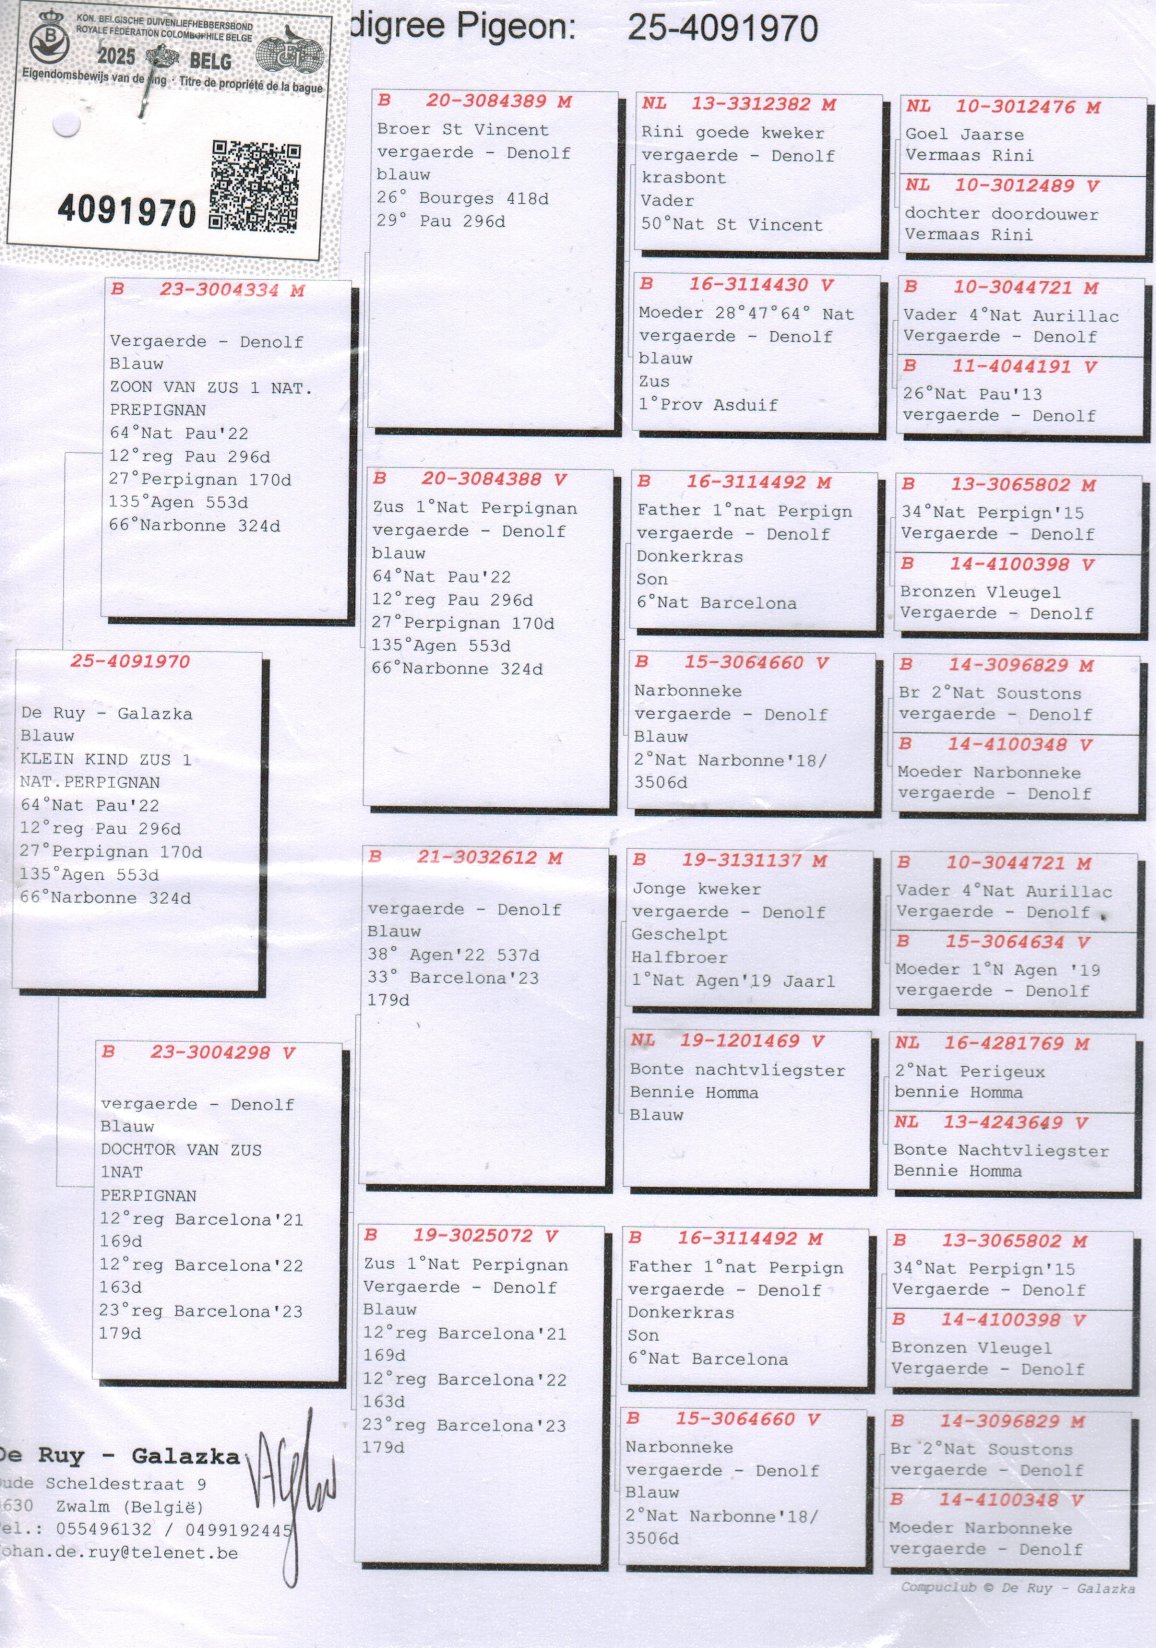 KON. BELGISCHE DUIVENLIEFHEBBERSBOND
ROYALE FÉDÉRATION COLOMBOPHILE BELGE
2025 BELG
Eigendomsbewijs van de ring · Titre de propriété de la bague
4091970
digree Pigeon: 25-4091970
25-4091970
De Ruy - Galazka
Blauw
KLEIN KIND ZUS 1
NAT.PERPIGNAN
64°Nat Pau'22
12°reg Pau 296d
27°Perpignan 170d
135°Agen 553d
66°Narbonne 324d
B 23-3004334 M
Vergaerde - Denolf
Blauw
ZOON VAN ZUS 1 NAT.
PREPIGNAN
64°Nat Pau'22
12°reg Pau 296d
27°Perpignan 170d
135°Agen 553d
66°Narbonne 324d
B 23-3004298 V
vergaerde - Denolf
Blauw
DOCHTOR VAN ZUS
1NAT
PERPIGNAN
12°reg Barcelona'21
169d
12°reg Barcelona'22
163d
23°reg Barcelona'23
179d
B 20-3084389 M
Broer St Vincent
vergaerde - Denolf
blauw
26° Bourges 418d
29° Pau 296d
B 20-3084388 V
Zus 1°Nat Perpignan
vergaerde - Denolf
blauw
64°Nat Pau'22
12°reg Pau 296d
27°Perpignan 170d
135°Agen 553d
66°Narbonne 324d
B 21-3032612 M
vergaerde - Denolf
Blauw
38° Agen'22 537d
33° Barcelona'23
179d
B 19-3025072 V
Zus 1°Nat Perpignan
Vergaerde - Denolf
Blauw
12°reg Barcelona'21
169d
12°reg Barcelona'22
163d
23°reg Barcelona'23
179d
NL 13-3312382 M
Rini goede kweker
vergaerde - Denolf
krasbont
Vader
50°Nat St Vincent
B 16-3114430 V
Moeder 28°47°64° Nat
vergaerde - Denolf
blauw
Zus
1°Prov Asduif
B 16-3114492 M
Father 1°nat Perpign
vergaerde - Denolf
Donkerkras
Son
6°Nat Barcelona
B 15-3064660 V
Narbonneke
vergaerde - Denolf
Blauw
2°Nat Narbonne'18/
3506d
B 19-3131137 M
Jonge kweker
vergaerde - Denolf
Geschelpt
Halfbroer
1°Nat Agen'19 Jaarl
NL 19-1201469 V
Bonte nachtvliegster
Bennie Homma
Blauw
B 16-3114492 M
Father 1°nat Perpign
vergaerde - Denolf
Donkerkras
Son
6°Nat Barcelona
B 15-3064660 V
Narbonneke
vergaerde - Denolf
Blauw
2°Nat Narbonne'18/
3506d
NL 10-3012476 M
Goel Jaarse
Vermaas Rini
NL 10-3012489 V
dochter doordouwer
Vermaas Rini
B 10-3044721 M
Vader 4°Nat Aurillac
Vergaerde - Denolf
B 11-4044191 V
26°Nat Pau'13
vergaerde - Denolf
B 13-3065802 M
34°Nat Perpign'15
Vergaerde - Denolf
B 14-4100398 V
Bronzen Vleugel
Vergaerde - Denolf
B 14-3096829 M
Br 2°Nat Soustons
vergaerde - Denolf
B 14-4100348 V
Moeder Narbonneke
vergaerde - Denolf
B 10-3044721 M
Vader 4°Nat Aurillac
Vergaerde - Denolf
B 15-3064634 V
Moeder 1°N Agen '19
vergaerde - Denolf
NL 16-4281769 M
2°Nat Perigeux
bennie Homma
NL 13-4243649 V
Bonte Nachtvliegster
Bennie Homma
B 13-3065802 M
34°Nat Perpign'15
Vergaerde - Denolf
B 14-4100398 V
Bronzen Vleugel
Vergaerde - Denolf
B 14-3096829 M
Br 2°Nat Soustons
vergaerde - Denolf
B 14-4100348 V
Moeder Narbonneke
vergaerde - Denolf
De Ruy - Galazka
Oude Scheldestraat 9
9630 Zwalm (België)
Tel.: 055496132 / 0499192445
johan.de.ruy@telenet.be
Compuclub © De Ruy - Galazka